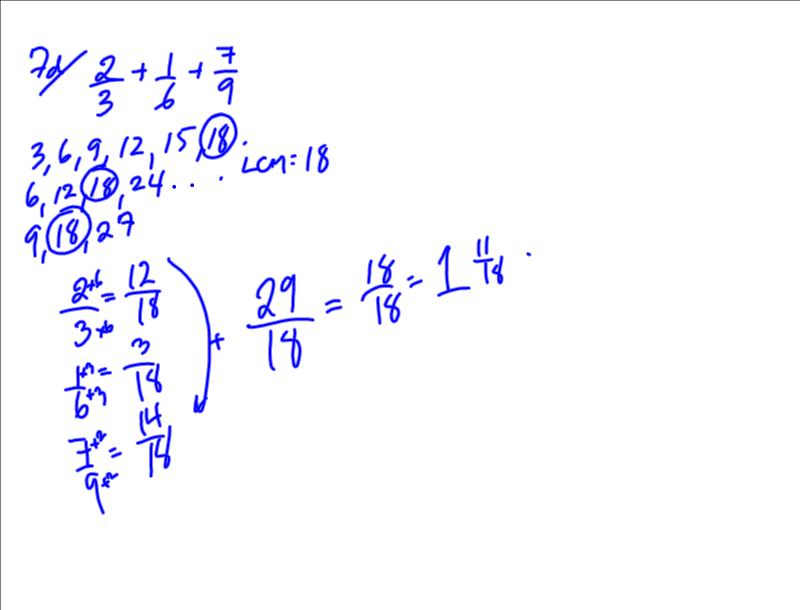 7d/ 2/3 + 1/6 + 7/9
3, 6, 9, 12, 15, 18.
6, 12, 18, 24 . . . . LCM = 18
9, 18, 27
2×6/3×6 = 12/18
1×3/6×3 = 3/18
7×2/9×2 = 14/18
+ 29/18 = 18/18 = 1 11/18 .